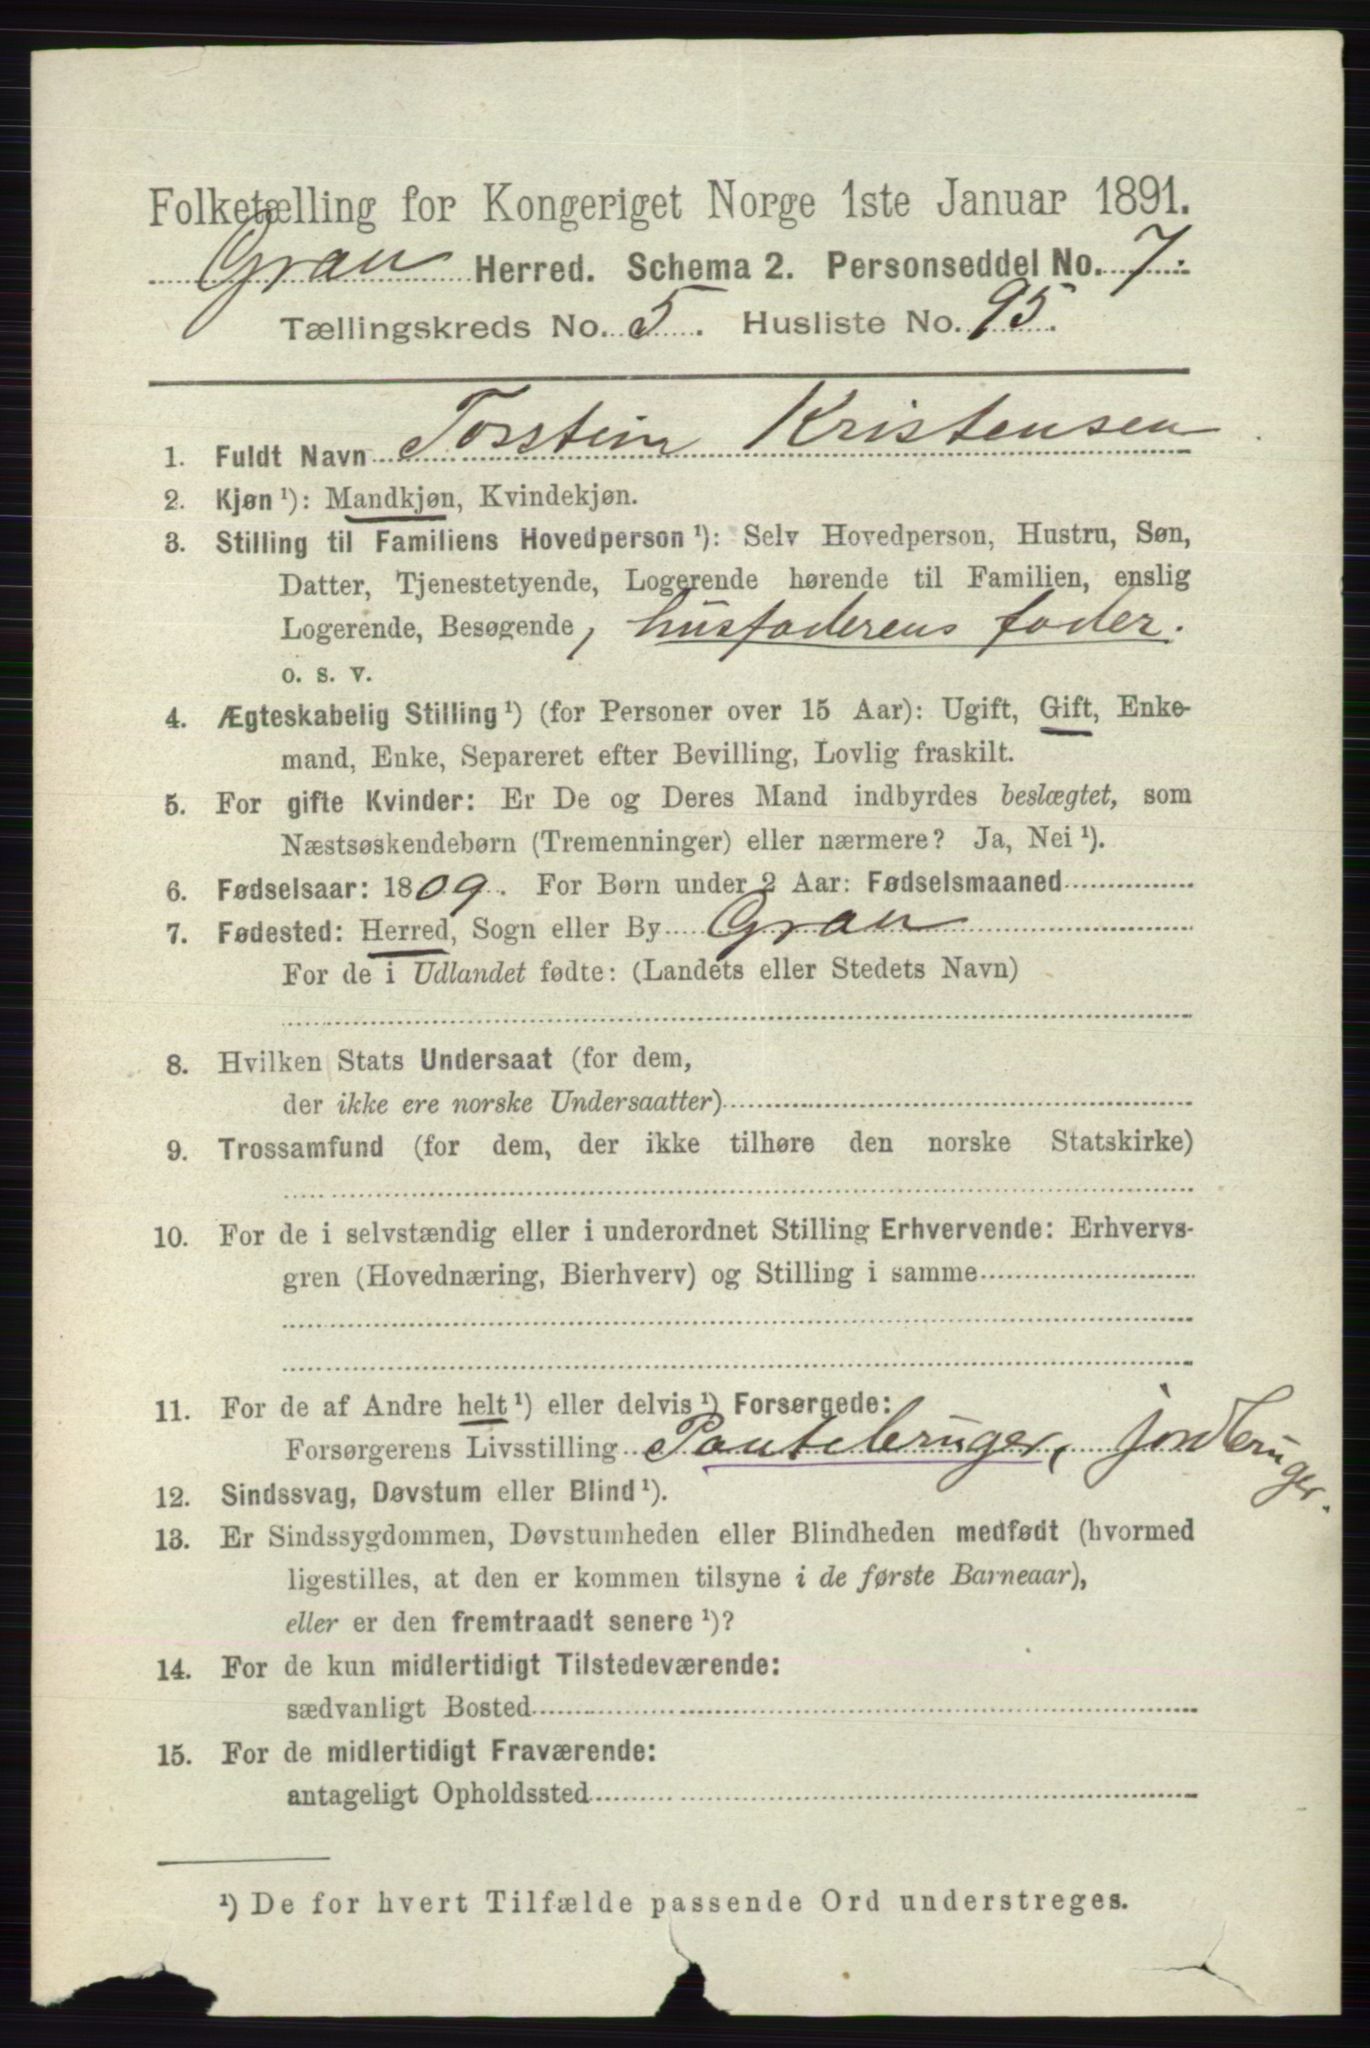 Folketælling for Kongeriget Norge 1ste Januar 1891.
Gran Herred. Schema 2. Personseddel No. 7.
Tællingskreds No. 5. Husliste No. 95.
1. Fuldt Navn Torstein Kristensen
2. Kjøn ¹): Mandkjøn, Kvindekjøn.
3. Stilling til Familiens Hovedperson ¹): Selv Hovedperson, Hustru, Søn,
Datter, Tjenestetyende, Logerende hørende til Familien, enslig
Logerende, Besøgende, husfaderens fader.
o. s. v.
4. Ægteskabelig Stilling ¹) (for Personer over 15 Aar): Ugift, Gift, Enke-
mand, Enke, Separeret efter Bevilling, Lovlig fraskilt.
5. For gifte Kvinder: Er De og Deres Mand indbyrdes beslægtet, som
Næstsøskendebørn (Tremenninger) eller nærmere? Ja, Nei ¹).
6. Fødselsaar: 1809. For Børn under 2 Aar: Fødselsmaaned
7. Fødested: Herred, Sogn eller By Gran
For de i Udlandet fødte: (Landets eller Stedets Navn)
8. Hvilken Stats Undersaat (for dem,
der ikke ere norske Undersaatter)
9. Trossamfund (for dem, der ikke tilhøre den norske Statskirke)
10. For de i selvstændig eller i underordnet Stilling Erhvervende: Erhvervs-
gren (Hovednæring, Bierhverv) og Stilling i samme
11. For de af Andre helt ¹) eller delvis ¹) Forsørgede:
Forsørgerens Livsstilling Pantebruger, jordbruger.
12. Sindssvag, Døvstum eller Blind ¹).
13. Er Sindssygdommen, Døvstumheden eller Blindheden medfødt (hvormed
ligestilles, at den er kommen tilsyne i de første Barneaar),
eller er den fremtraadt senere ¹)?
14. For de kun midlertidigt Tilstedeværende:
sædvanligt Bosted
15. For de midlertidigt Fraværende:
antageligt Opholdssted
¹) De for hvert Tilfælde passende Ord understreges.